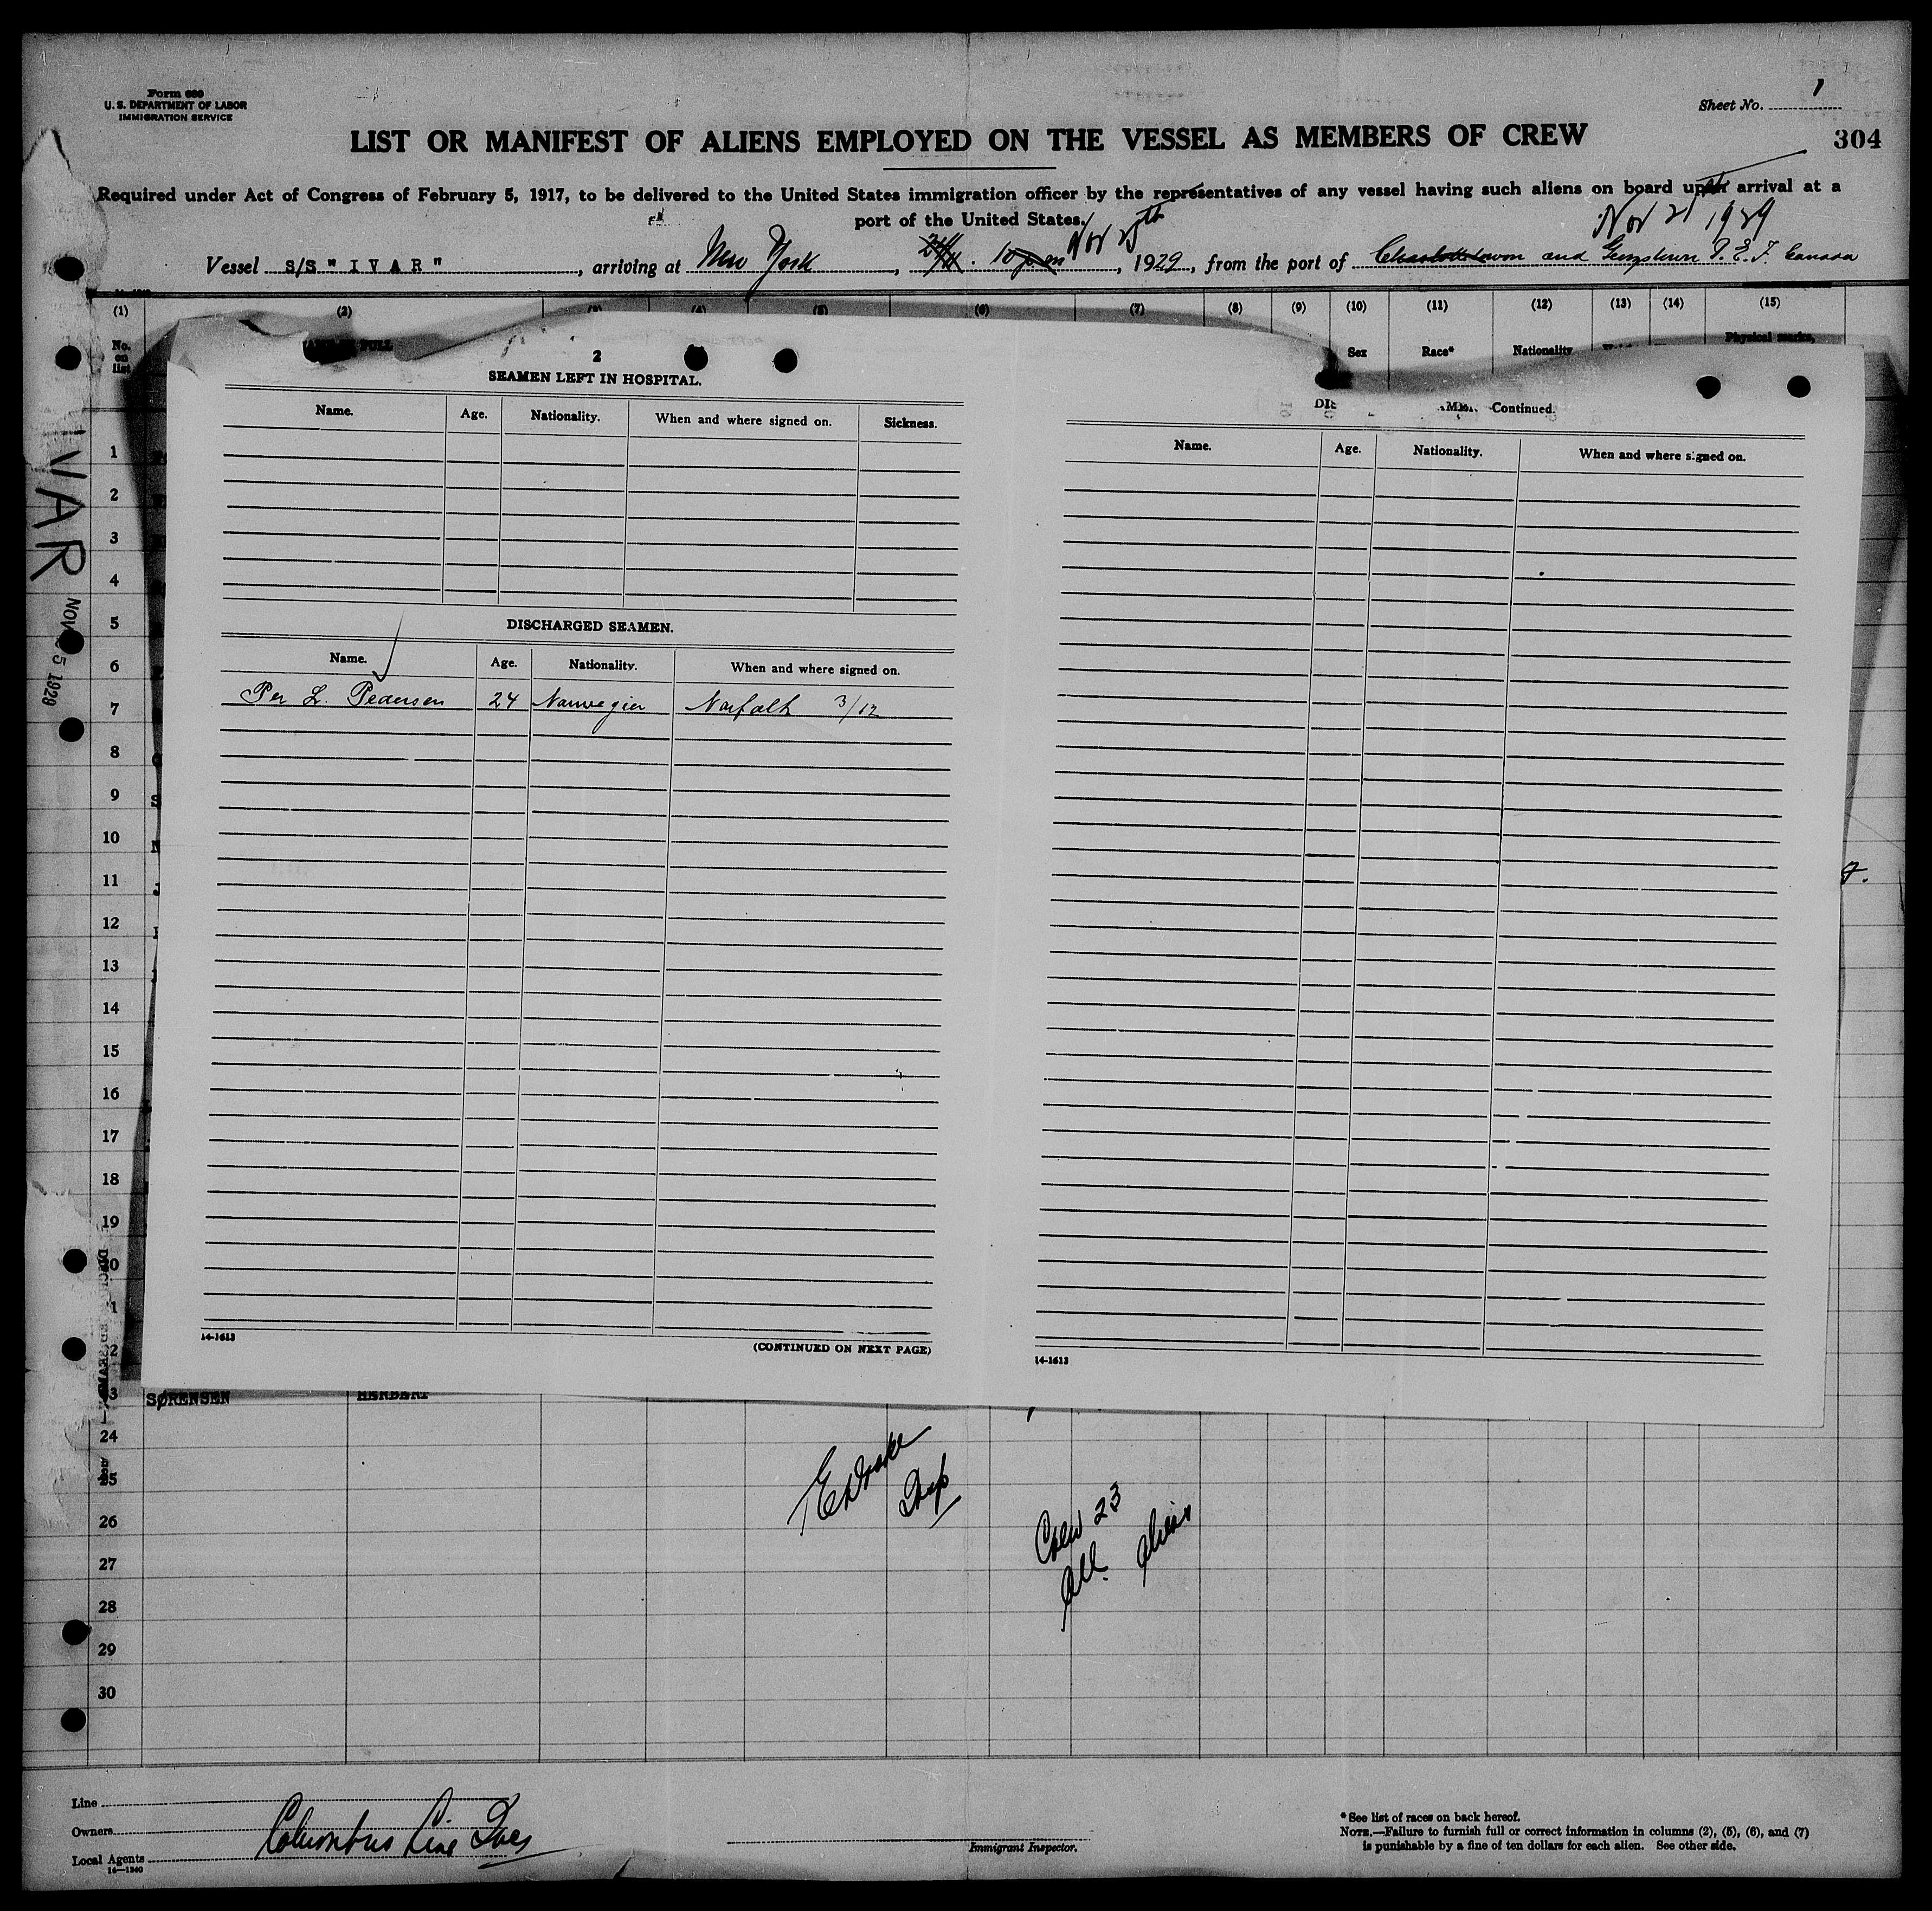 Form 680
U. S. DEPARTMENT OF LABOR
IMMIGRATION SERVICE
Sheet No. 1
LIST OR MANIFEST OF ALIENS EMPLOYED ON THE VESSEL AS MEMBERS OF CREW
304
Required under Act of Congress of February 5, 1917, to be delivered to the United States immigration officer by the representatives of any vessel having such aliens on board upon arrival at a
port of the United States.
Nov 21 1929
Nov 25th
Vessel S/S "IVAR", arriving at New York, 1929, from the port of Charlottetown and Georgetown P. E. I. Canada
(1) (2) (3) (4) (5) (6) (7) (8) (9) (10) (11) (12) (13) (14) (15)
No. on list
FULL
Sex
Race*
Nationality
Physical marks,
IVAR
NOV 25 1929
2
SEAMEN LEFT IN HOSPITAL.
Name. Age. Nationality. When and where signed on. Sickness.
DISCHARGED SEAMEN.
Name. Age. Nationality. When and where signed on.
Per L. Pedersen 24 Norwegian Norfolk 3/12
14-1613
(CONTINUED ON NEXT PAGE)
Continued.
Name. Age. Nationality. When and where signed on.
14-1613
1
2
3
4
5
6
7
8
9
10
11
12
13
14
15
16
17
18
19
SØRENSEN HERBERT
24
25
26
27
28
29
30
Insp
Crew 23
All aliens
Line
Owners
Local Agents
Columbus Line Inc
14—1240
Immigrant Inspector.
* See list of races on back hereof.
NOTE.—Failure to furnish full or correct information in columns (2), (5), (6), and (7)
is punishable by a fine of ten dollars for each alien. See other side.